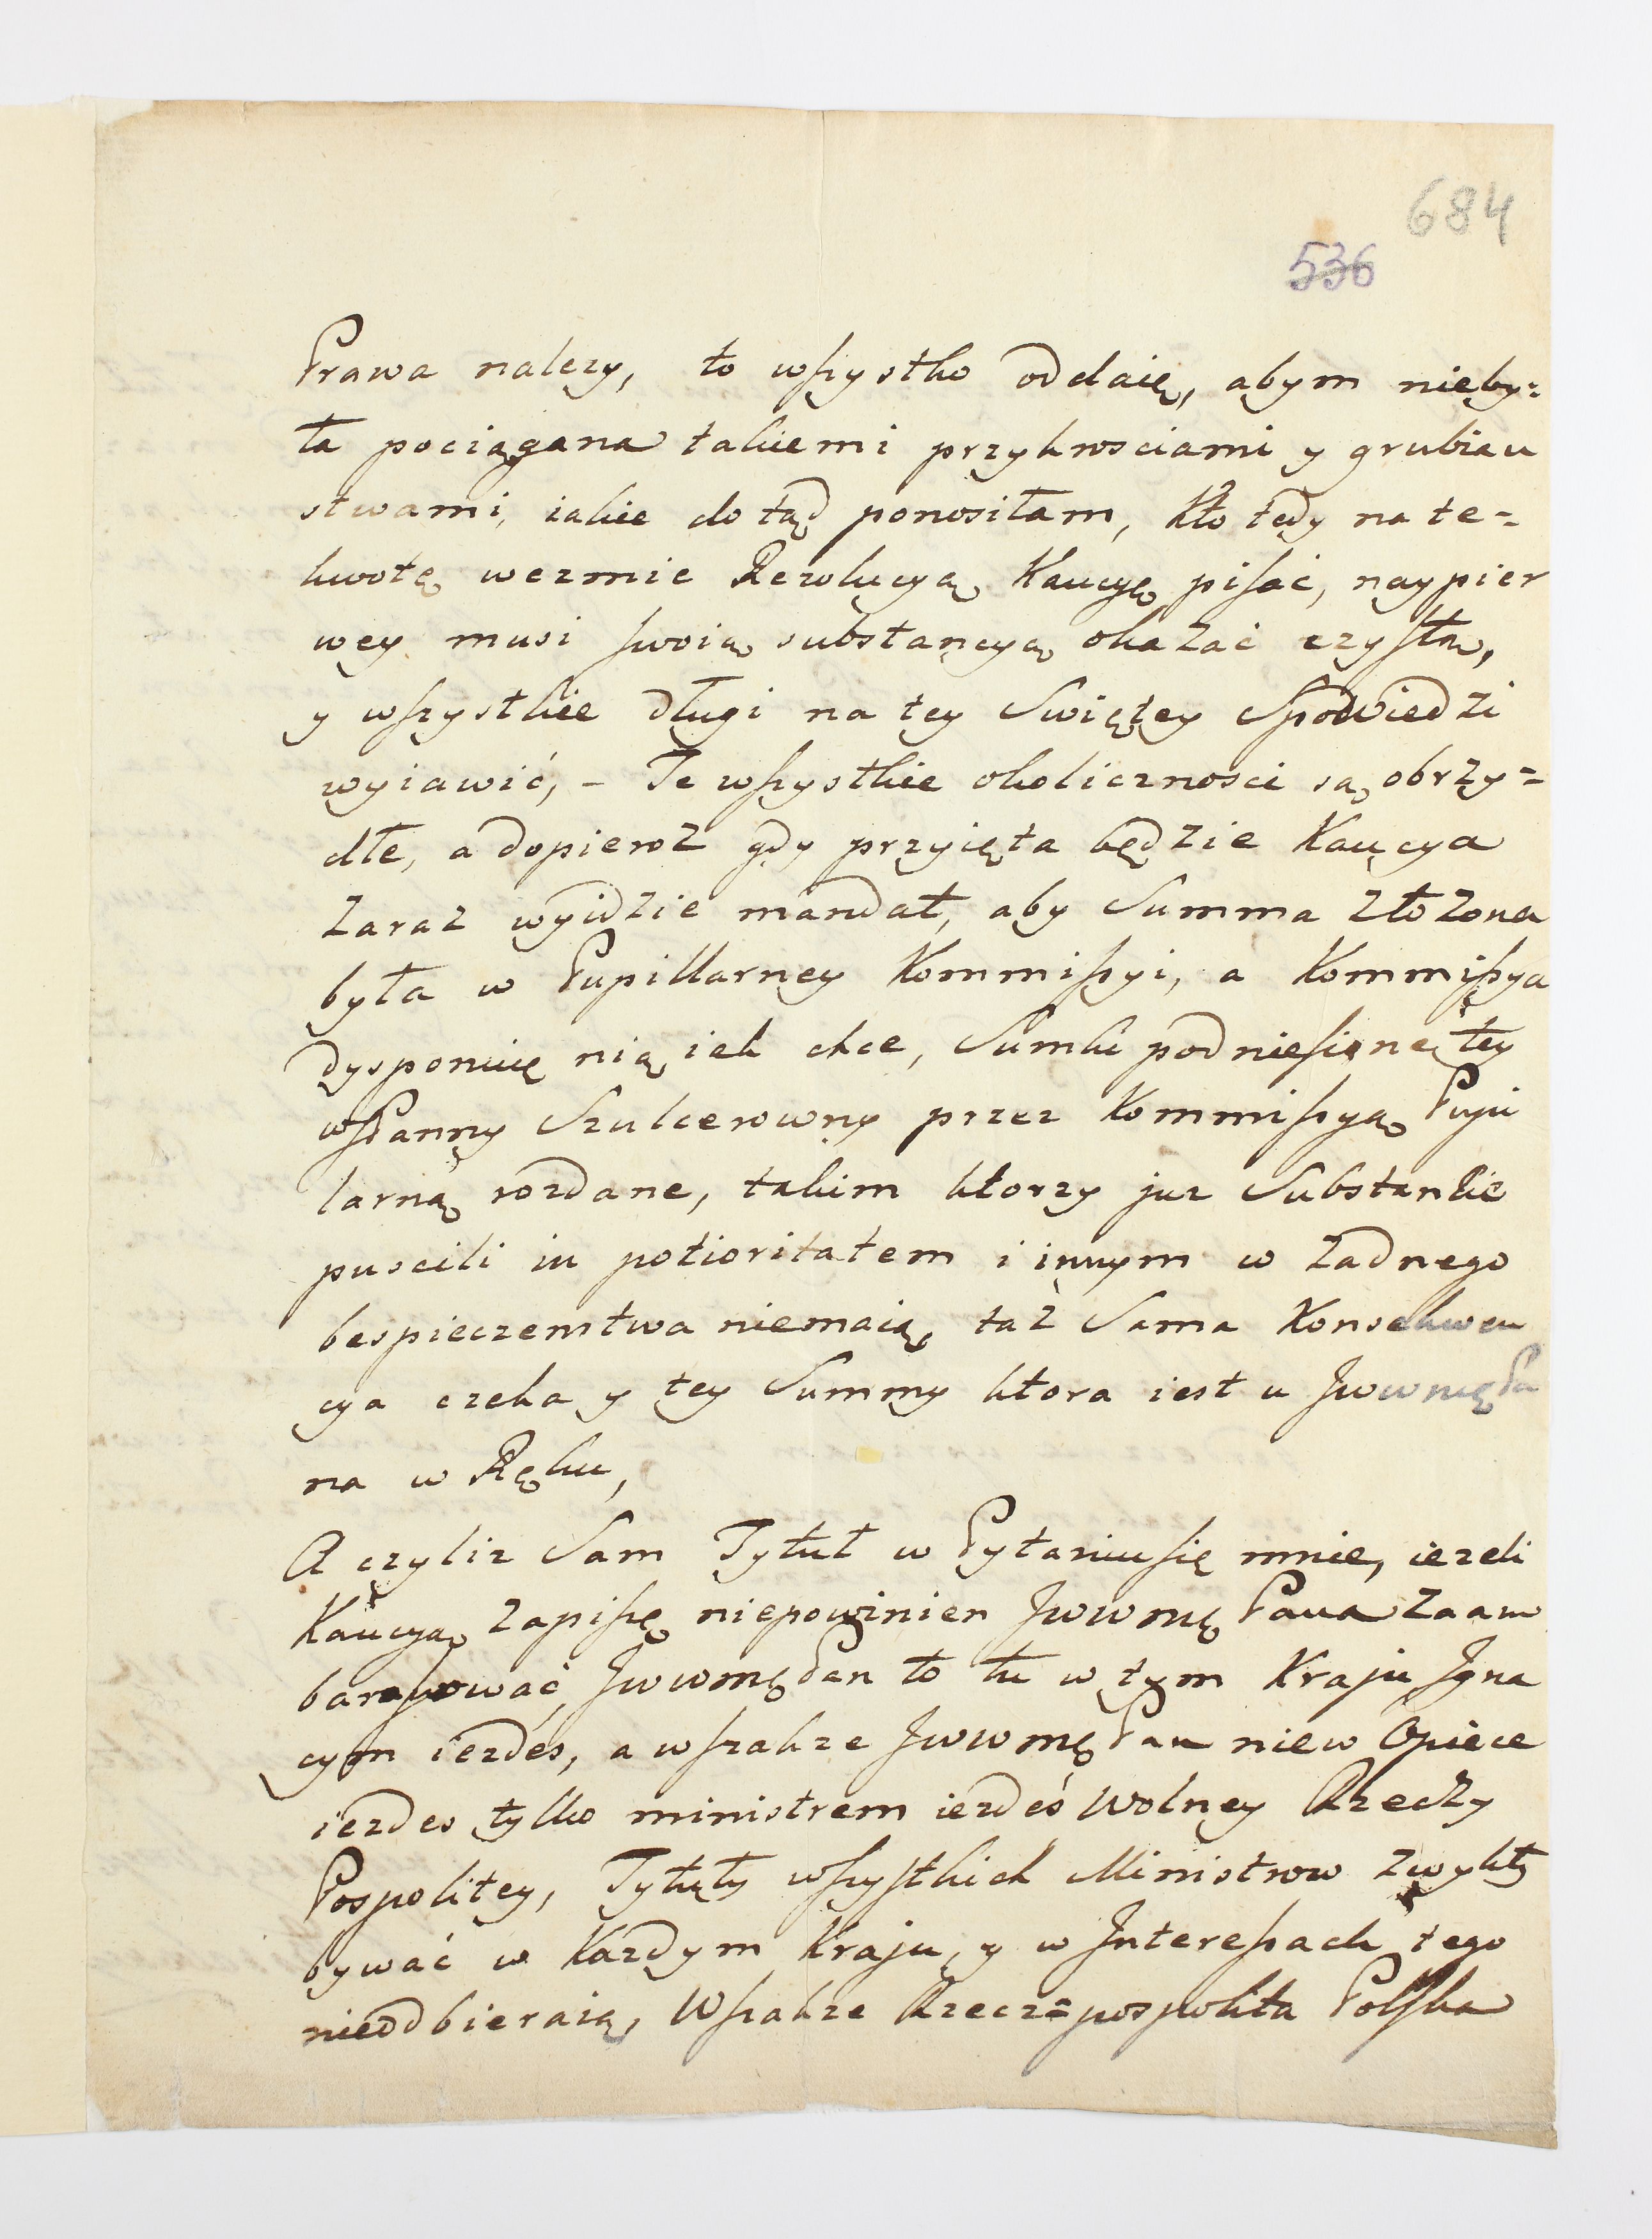 684
536
Prawa nalezy, to wszystko oddaię, abym nieby=
ła pociągana takiemi przykrosciami y grubian
stwami, iakie dotąd ponosiłam, Kto tedy na te=
kwotę wezmie Rezolucyą Kaucyę pisać, naypier
wey musi swoią substancyą okazać czystą,
y wszystkie długi na tey Swiętey Spowiedzi
wyiawić, – Te wszystkie okolicznosci są obrzy=
dłe, a dopieroz gdy przyięta będzie Kaucya
Zaraz wyidzie mandat, aby Summa złozona
była w Pupillarney Kommissyi, a Kommissya
dysponuię nią iek chce, Sumki podniesione tey
WPanny Szulcerowny przez Kommissyą Pupi
larną rozdane, takim ktorzy juz Substancie
puscili in potioritatem i innym w zadnego
bespieczenstwa niemaią, taz Sama Konsekwen
cya czeka y tey Summy ktora iest u JWWmę Pa
na w Ręku,
A czyliz Sam Tytuł w Pytaniu się mnie, iezeli
Kaucyą Zapiszę niepowinien JWWmę Pana Zaam
barasować, JWWmę Pan to tu w tym Kraju Igna
cym iezdes, a wszakze JWWmę Pan niew Opiece
iezdes tylko ministrem iezdeś Wolney Rzeczy
Pospolitey, Tytuły wszystkich Ministrow zwykły
bywać w Kazdym Kraju, y w Interessach tego
nieodbieraią, Wszakze Rzecz=pospolita Polska